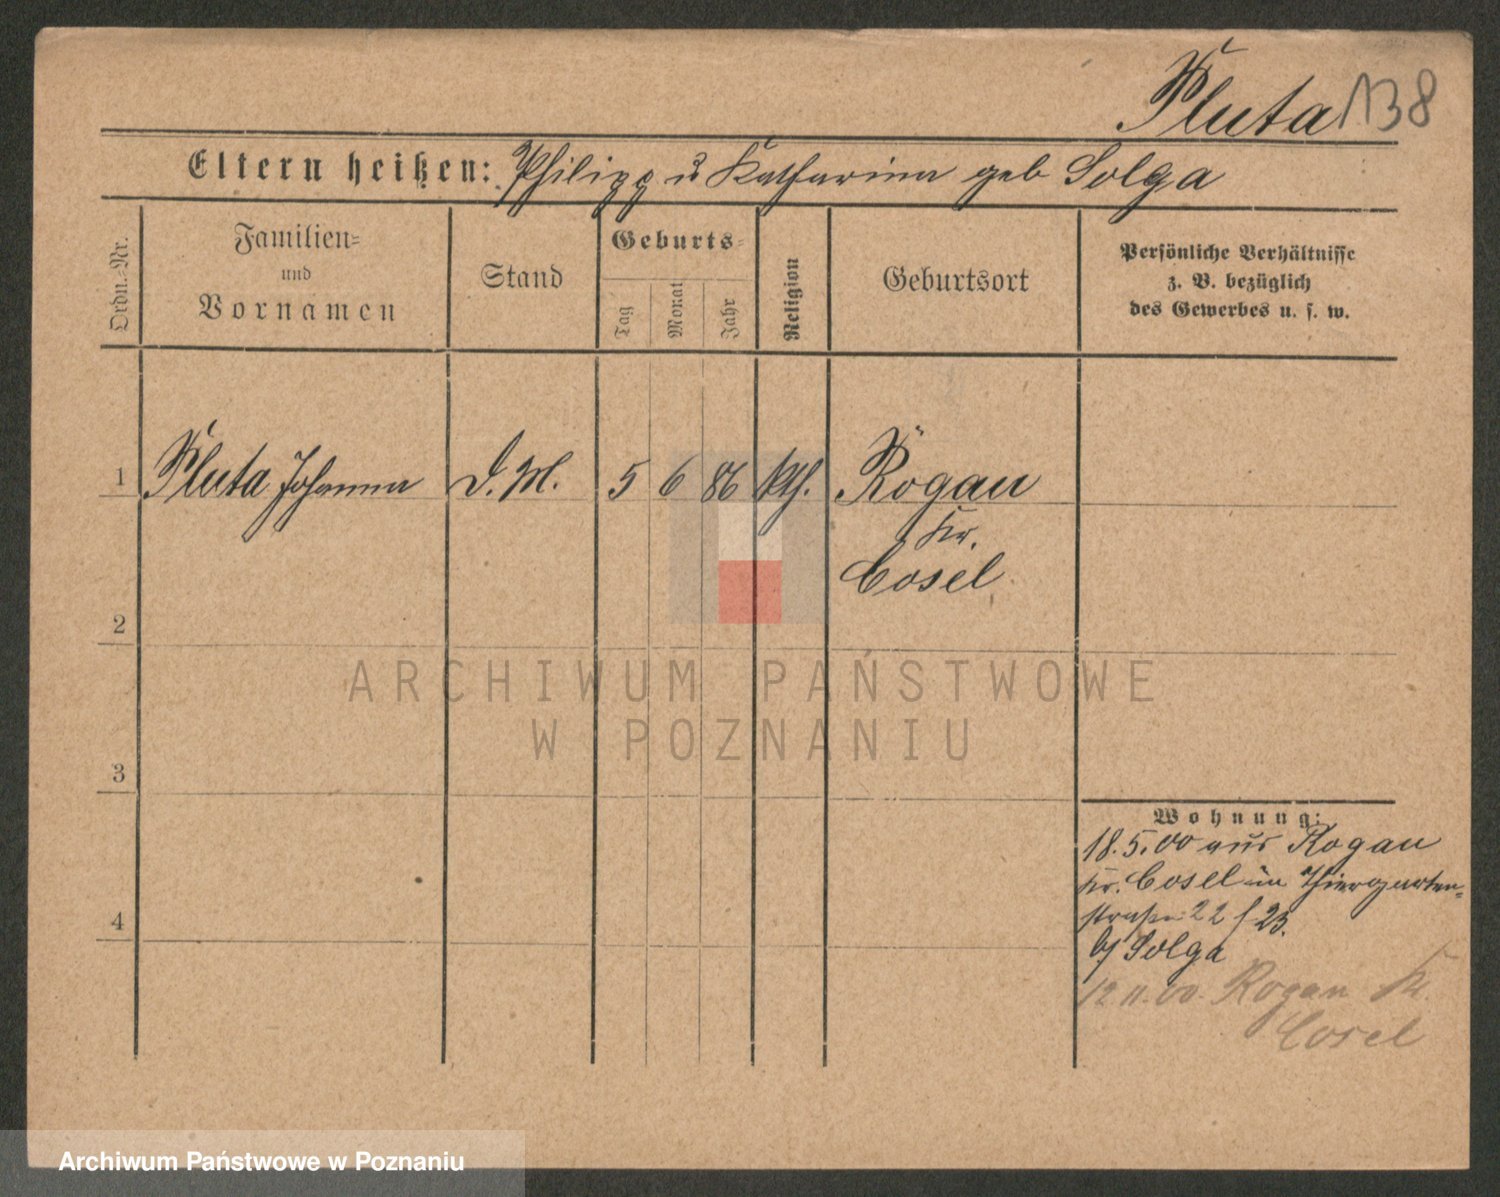 Pluta 138
Eltern heißen: Philipp u Katharina geb Solga
Ordn.-Nr.
Familien-
und
Vornamen
Stand
Geburts-
Tag
Monat
Jahr
Religion
Geburtsort
Persönliche Verhältnisse
z. B. bezüglich
des Gewerbes u. s. w.
1 Pluta Johanna D. M. 5 6 86 kth. Rogau
Kr.
Cosel
2
ARCHIWUM PAŃSTWOWE
W POZNANIU
3
Wohnung:
18.5.00 aus Rogau
Kr. Cosel in Thiergarten-
straße 22/23.
b/ Solga
4
12.11.00. Rogau Kr.
Cosel
Archiwum Państwowe w Poznaniu